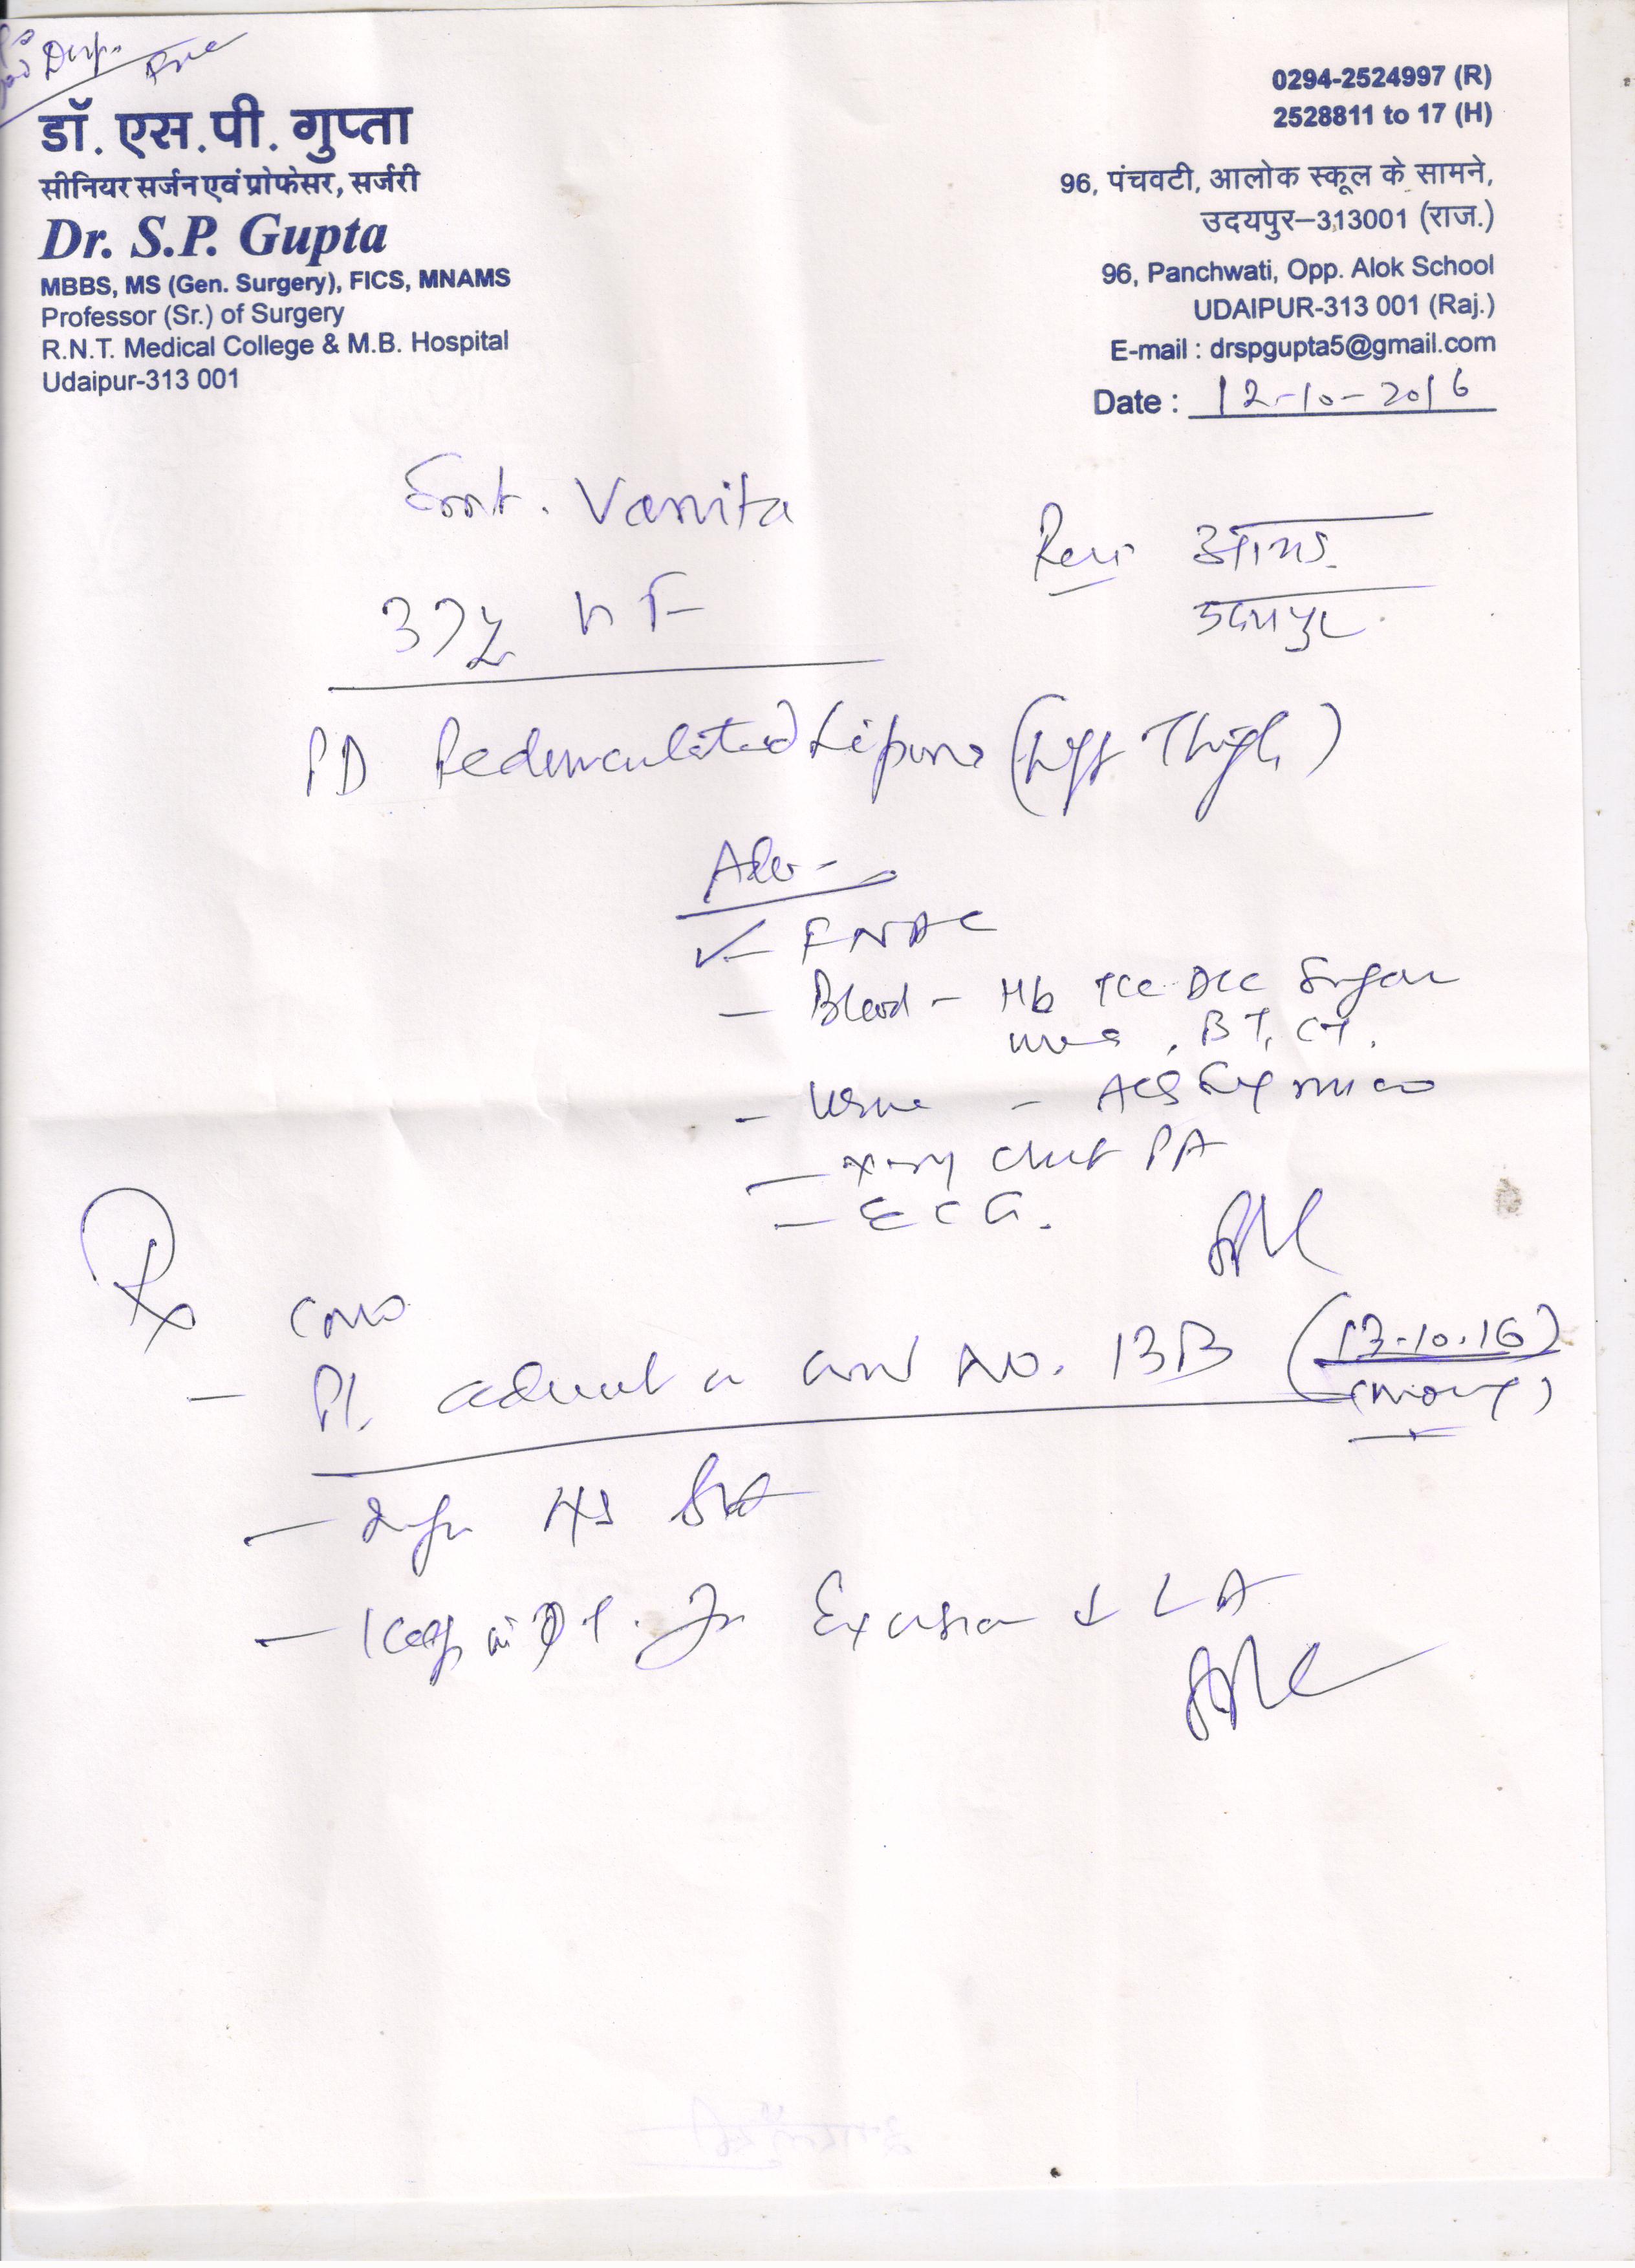 डॉ. एस.पी. गुप्ता
सीनियर सर्जन एवं प्रोफेसर, सर्जरी
Dr. S.P. Gupta
MBBS, MS (Gen. Surgery), FICS, MNAMS
Professor (Sr.) of Surgery
R.N.T. Medical College & M.B. Hospital
Udaipur-313 001
0294-2524997 (R)
2528811 to 17 (H)
96, पंचवटी, आलोक स्कूल के सामने,
उदयपुर–313001 (राज.)
96, Panchwati, Opp. Alok School
UDAIPUR-313 001 (Raj.)
E-mail : drspgupta5@gmail.com
Date : 12-10-2016
Smt. Vanita
37y F
उदयपुर
PD Pedunculated Lipoma (Left Thigh)
Adv -
✓ - FNAC
- Blood - Hb TLC DLC Sugar
urea, BT, CT.
- Urine -
- X-ray Chest PA
- ECG.
Rx
- Pl. admit in ward No. 13B (13.10.16)
-
- Keep in OT. for Excision LA